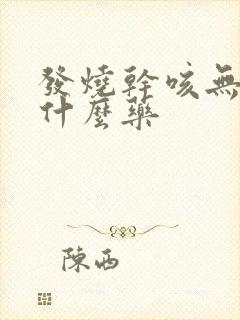 發燒幹咳無
什麼藥
陳西